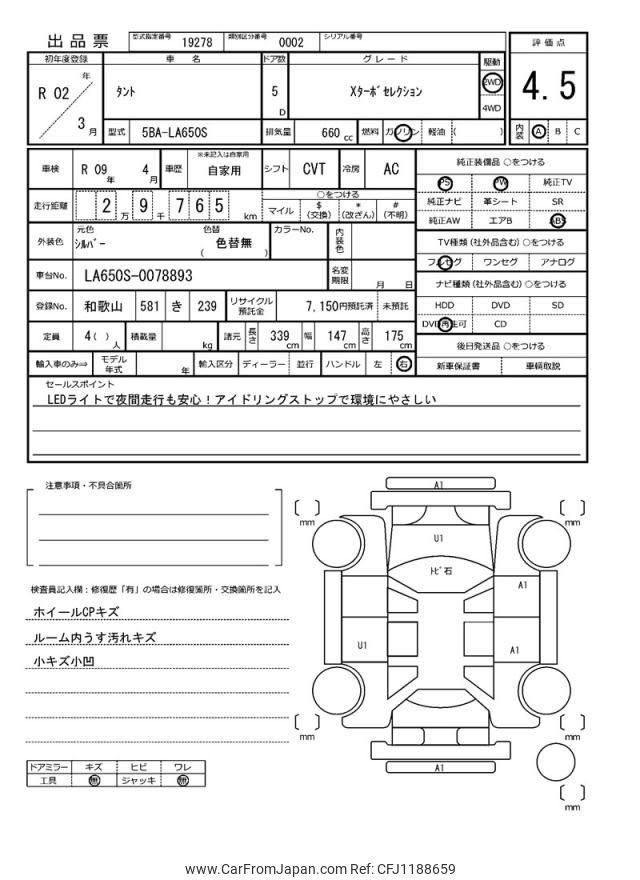 出品票
型式指定番号 19278 類別区分番号 0002 シリアル番号
初年度登録 車名 ドア数 グレード 駆動 評価点
R 02 年 タント 5 D Xターボ セレクション 2WD 4.5
3 月 4WD
型式 5BA-LA650S 排気量 660 cc 燃料 ガソリン 軽油 ( ) 内装 A B C
車検 R 09 年 4 月 車歴 ※未記入は自家用 自家用 シフト CVT 冷房 AC
走行距離 2 万 9 千 7 6 5 km
○をつける
マイル $ (交換) * (改ざん) # (不明)
外装色 元色 シルバー 色替 ( 色替無 ) カラーNo. 内装色
車台No. LA650S-0078893 名変期限 月 日
登録No. 和歌山 581 き 239 リサイクル預託金 7,150円預託済 未預託
定員 4( ) 人 積載量 kg 諸元 長さ 339 cm 幅 147 cm 高さ 175 cm
輸入車のみ⇒ モデル年式 年 輸入区分 ディーラー 並行 ハンドル 左 右
純正装備品 ○をつける
PS PW 純正TV
純正ナビ 革シート SR
純正AW エアB ABS
TV種類(社外品含む) ○をつける
フルセグ ワンセグ アナログ
ナビ種類(社外品含む) ○をつける
HDD DVD SD
DVD再生可 CD
後日発送品 ○をつける
新車保証書 車輌取説
セールスポイント
LEDライトで夜間走行も安心!アイドリングストップで環境にやさしい
注意事項・不具合箇所
検査員記入欄:修復歴「有」の場合は修復箇所・交換箇所を記入
ホイールCPキズ
ルーム内うす汚れキズ
小キズ小凹
ドアミラー キズ ヒビ ワレ
工具 無 ジャッキ 無
A1
[ ] mm
[ ] mm
U1
トビ石
A1
U1
A1
[ ] mm
[ ] mm
A1
[ ] mm
www.CarFromJapan.com Ref: CFJ1188659